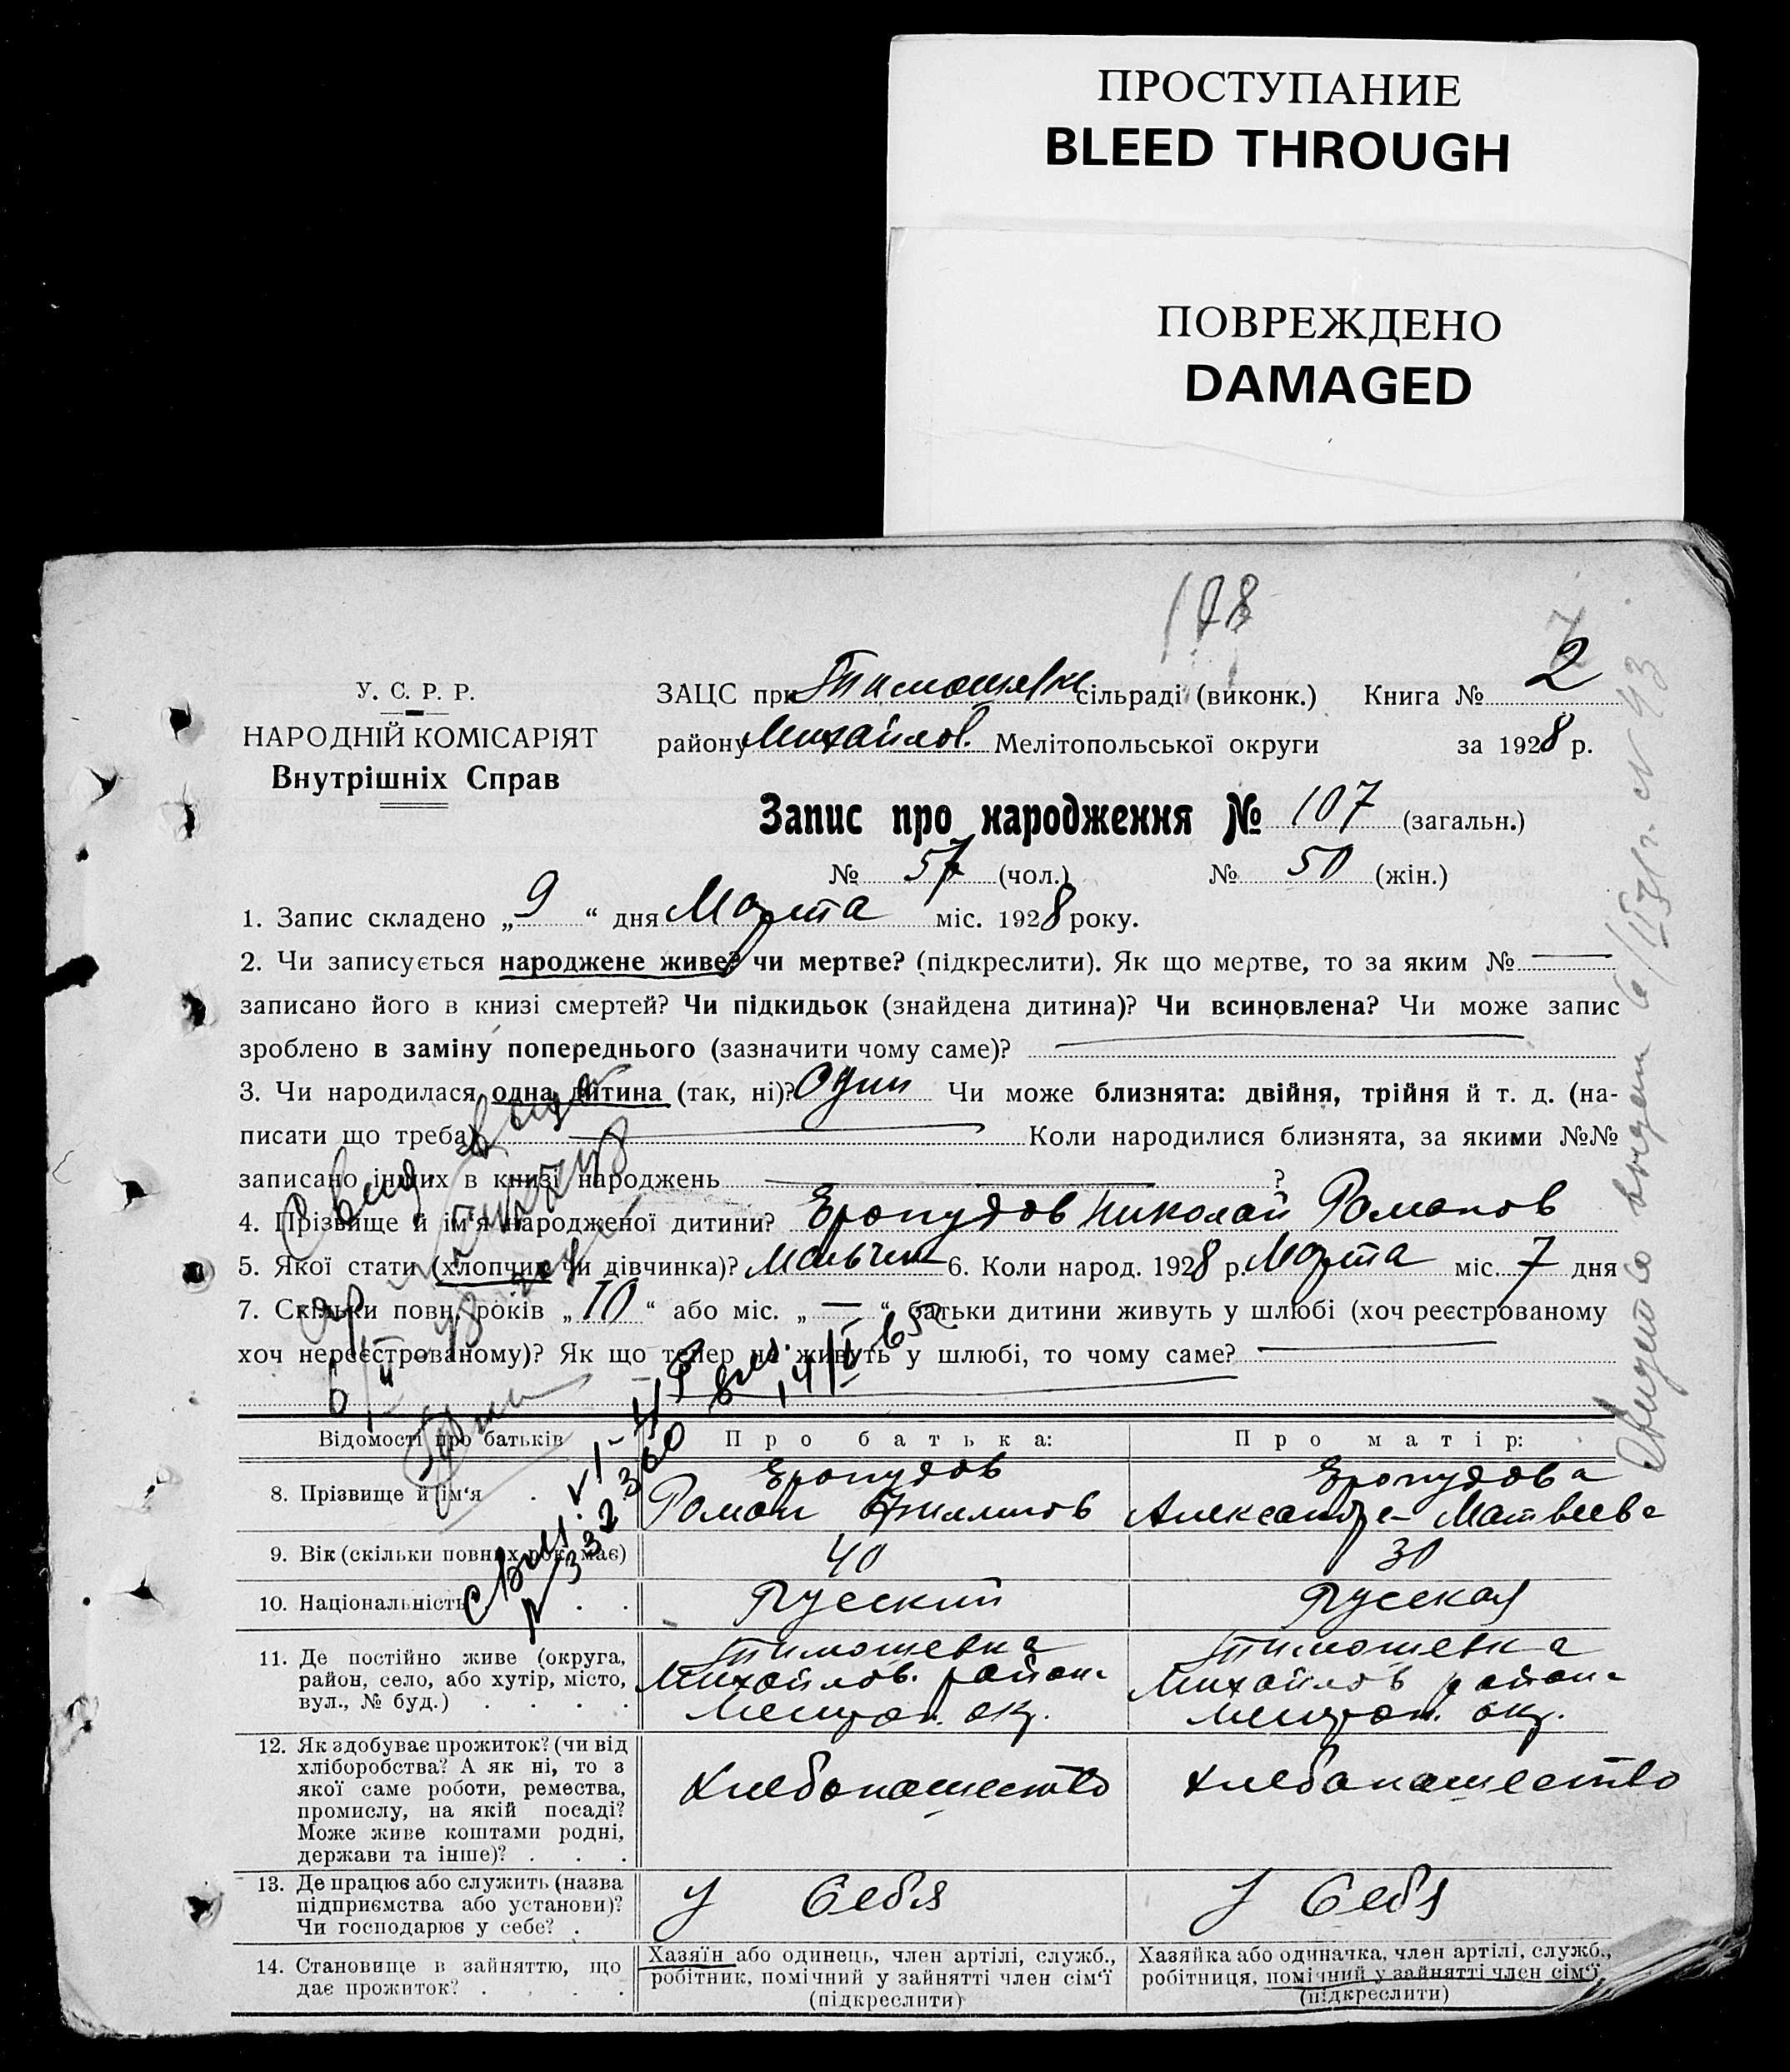 ПРОСТУПАНИЕ
BLEED THROUGH
ПОВРЕЖДЕНО
DAMAGED
У. С. Р. Р.
НАРОДНІЙ КОМІСАРІЯТ
Внутрішніх Справ
ЗАЦС при Тимошевк сільраді (виконк.) Книга № 2
району Михайлов. Мелітопольської округи за 1928 р.
Запис про народження № 107 (загальн.)
№ 57 (чол.) № 50 (жін.)
1. Запис складено „9“ дня Марта міс. 1928 року.
2. Чи записується народжене живе? чи мертве? (підкреслити). Як що мертве, то за яким № —
записано його в книзі смертей? Чи підкидьок (знайдена дитина)? Чи всиновлена? Чи може запис
зроблено в заміну попереднього (зазначити чому саме)?
3. Чи народилася одна дитина (так, ні)? Один Чи може близнята: двійня, трійня й т. д. (на-
писати що треба) Коли народилися близнята, за якими №№
записано інших в книзі народжень ?
4. Прізвище й ім‘я народженої дитини? Еропудов Николай Романов
5. Якої стати (хлопчик чи дівчинка)? Мальчик 6. Коли народ. 1928 р. Марта міс. 7 дня
7. Скільки повн. років „10“ або міс. „—“ батьки дитини живуть у шлюбі (хоч реєстрованому
хоч нереєстрованому)? Як що тепер не живуть у шлюбі, то чому саме?
Відомості про батьків Про батька: Про матір:
8. Прізвище й ім‘я Еропудов Роман Филипов Еропудова Александра Матвеева
9. Вік (скільки повних рок. має) 40 30
10. Національність Русский Русская
11. Де постійно живе (округа,
район, село, або хутір, місто,
вул., № буд.)
Тимошевка
Михайлов. района
Мелитоп. окр.
Тимошевка
Михайлов района
Мелитоп. окр.
12. Як здобуває прожиток? (чи від
хліборобства? А як ні, то з
якої саме роботи, ремества,
промислу, на якій посаді?
Може живе коштами родні,
держави та інше)?
Хлебопашество Хлебопашество
13. Де працює або служить (назва
підприємства або установи)?
Чи господарює у себе?
У Себя У Себя
14. Становище в зайняттю, що
дає прожиток?
Хазяїн або одинець, член артілі, служб.,
робітник, помічний у зайнятті член сім‘ї
(підкреслити)
Хазяйка або одиначка, член артілі, служб.,
робітниця, помічний у зайнятті член сім‘ї
(підкреслити)